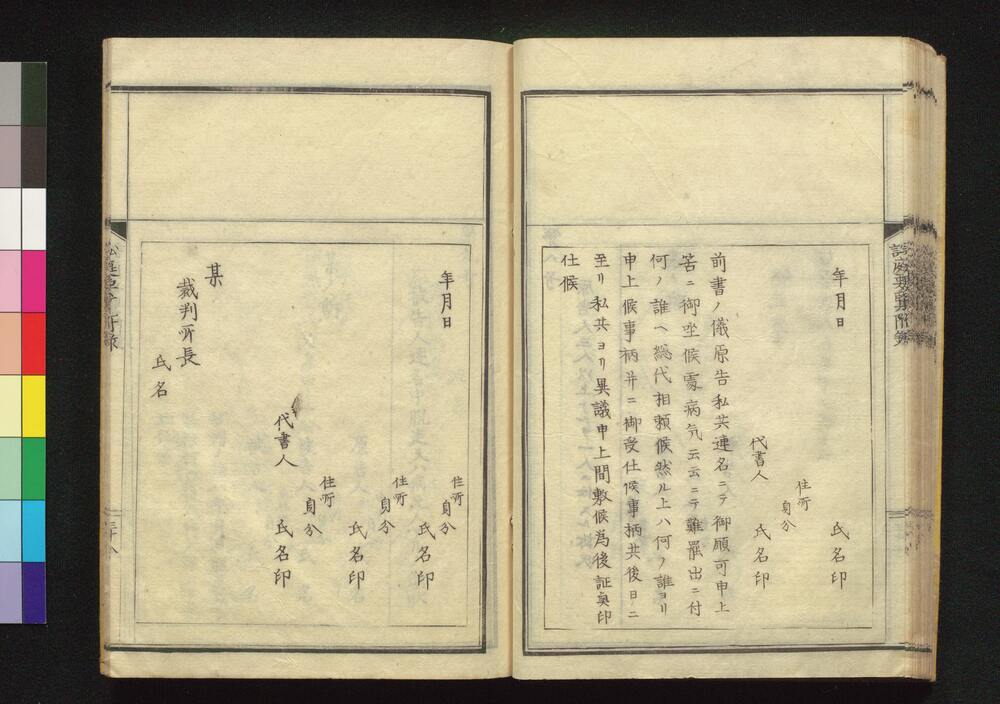 年月日
氏名印
住所
身分
代書人
氏名印
前書ノ儀原告私共連名ニテ御願可申上
筈ニ御坐候處病気云云ニテ難罷出ニ付
何ノ誰ヘ總代相頼候然ル上ハ何ノ誰ヨリ
申上候事柄并ニ御受仕候事柄共後日ニ
至リ私共ヨリ異議申上間敷候為後証奥印
仕候
年月日
住所
身分
氏名印
住所
身分
氏名印
住所
身分
代書人
氏名印
某
裁判所長
氏名
三十八